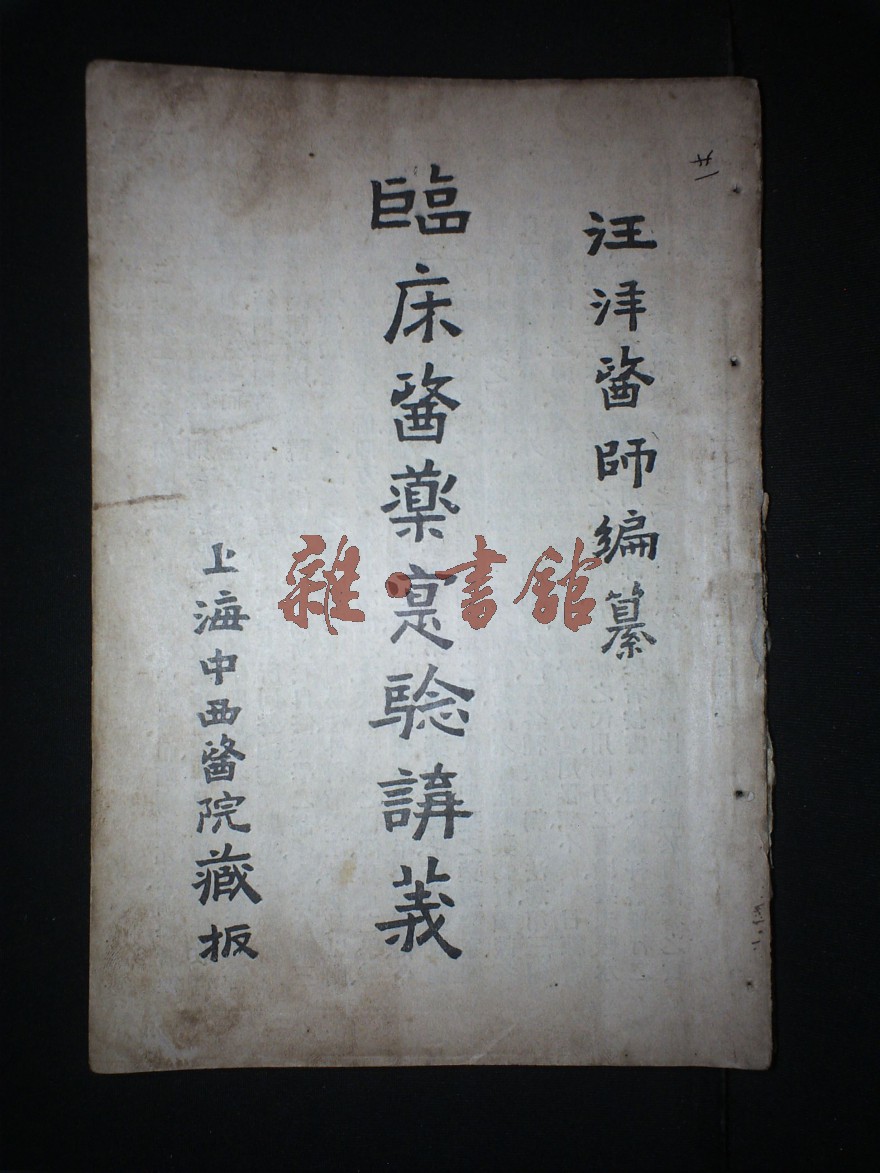 汪洋醫師編纂
臨床醫藥寔驗講義
上海中西醫院藏板
雜·書館